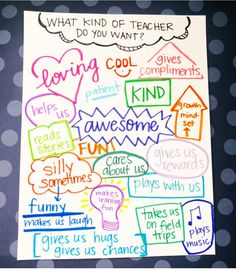 WHAT KIND OF TEACHER
DO YOU WANT?
loving
COOL
gives
compliments
patient
KIND
growth
mind-
set
helps
us
awesome
reads
stories
FUN!
cares
about us
gives us
rewards
silly
sometimes
makes
learning
fun
plays with us
funny
makes us laugh
takes us
on field
trips
plays
music
gives us hugs
gives us chances